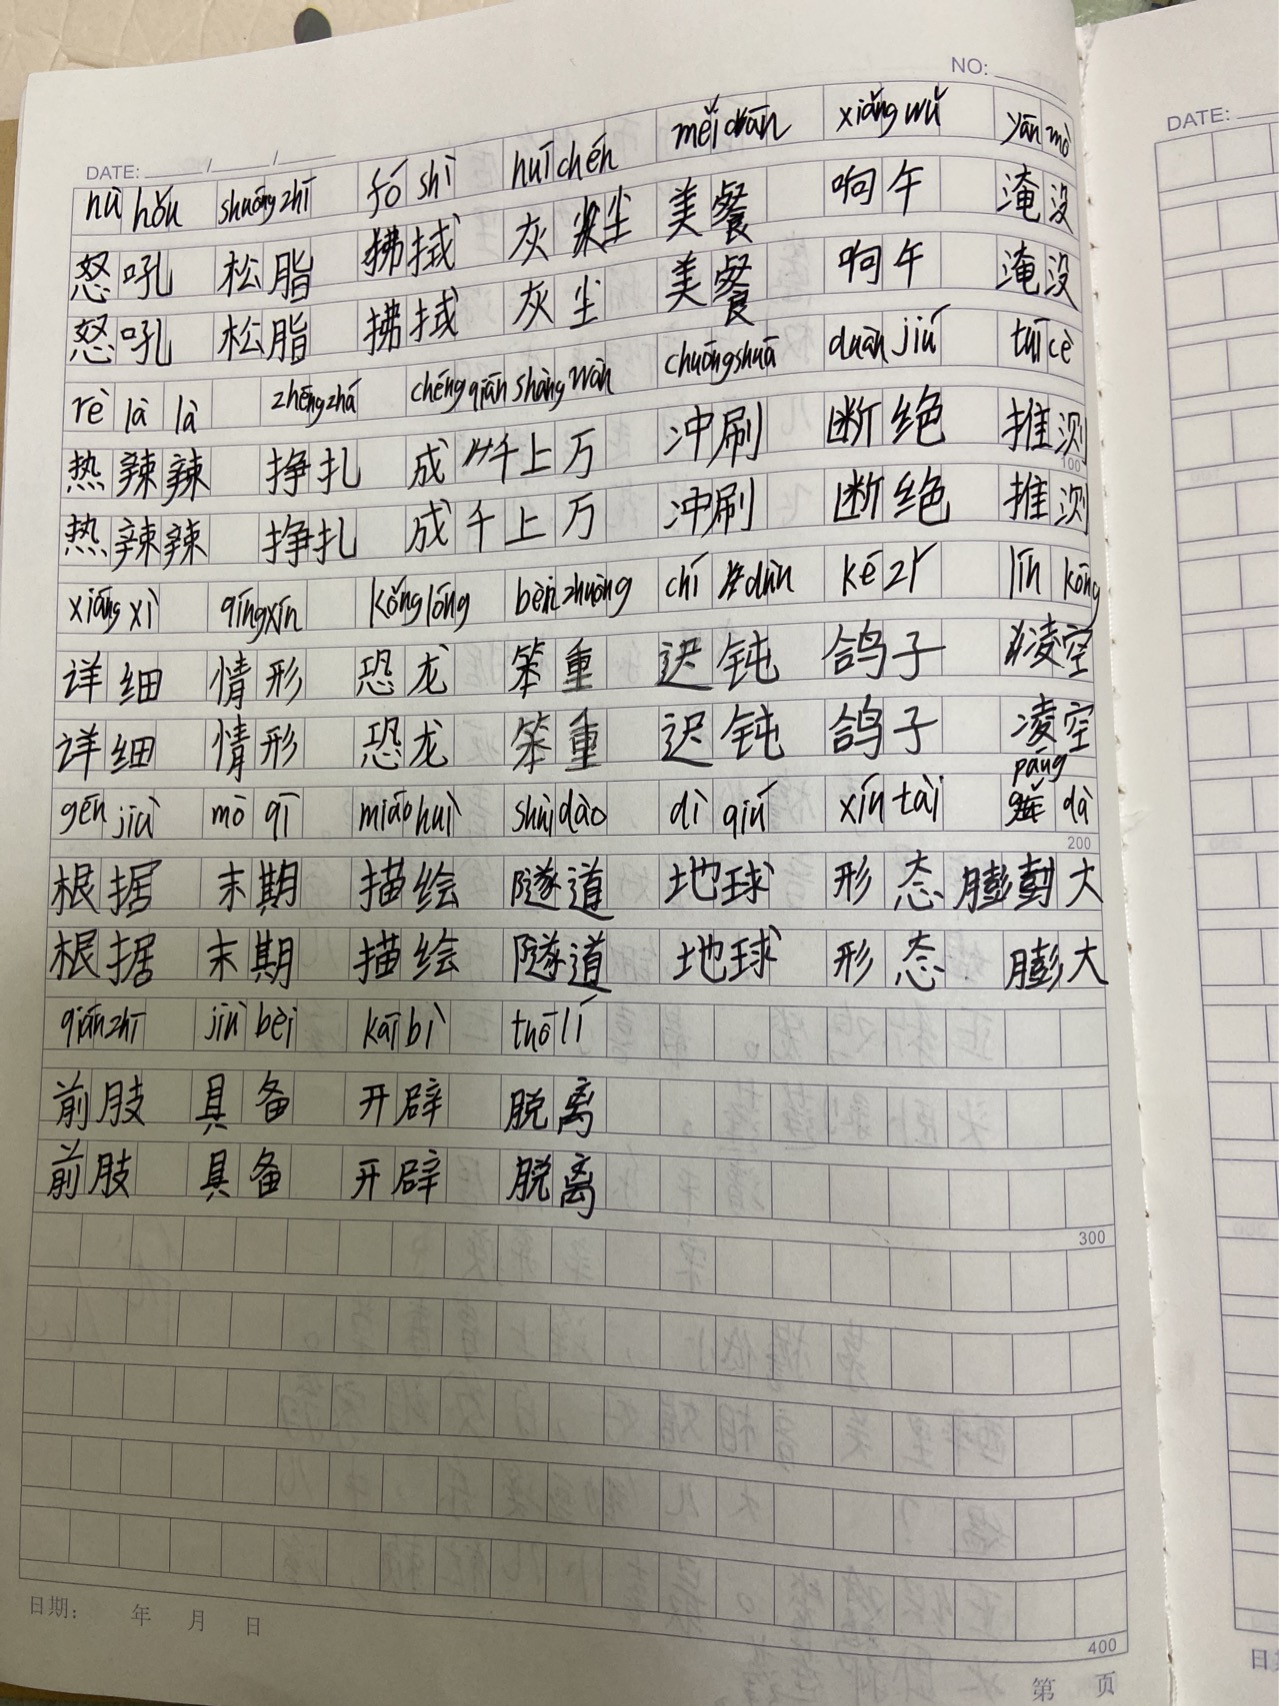 NO:
DATE: / /
nù hǒu shuōng zhī fó shì huī chén měi cān xiǎng wǔ yān mò
怒吼 松脂 拂拭 灰尘 美餐 响午 淹没
怒吼 松脂 拂拭 灰尘 美餐 响午 淹没
rè là là zhēng zhá chéng qiān shàng wàn chuōng shuā duàn jué tuī cè
热辣辣 挣扎 成千上万 冲刷 断绝 推测
100
热辣辣 挣扎 成千上万 冲刷 断绝 推测
xiáng xì qíng xín kǒng lóng bèn zhuòng chí dùn kē zǐ lín kōng
详细 情形 恐龙 笨重 迟钝 鸽子 凌空
详细 情形 恐龙 笨重 迟钝 鸽子 凌空
páng
gēn jiù mò qī miáo huì shuì dào dì qiú xín tài dà
200
根据 末期 描绘 隧道 地球 形态 膨大
根据 末期 描绘 隧道 地球 形态 膨大
qián zhī jiù bèi kāi bì tuō lí
前肢 具备 开辟 脱离
前肢 具备 开辟 脱离
300
400
日期: 年 月 日
第 页
DATE: